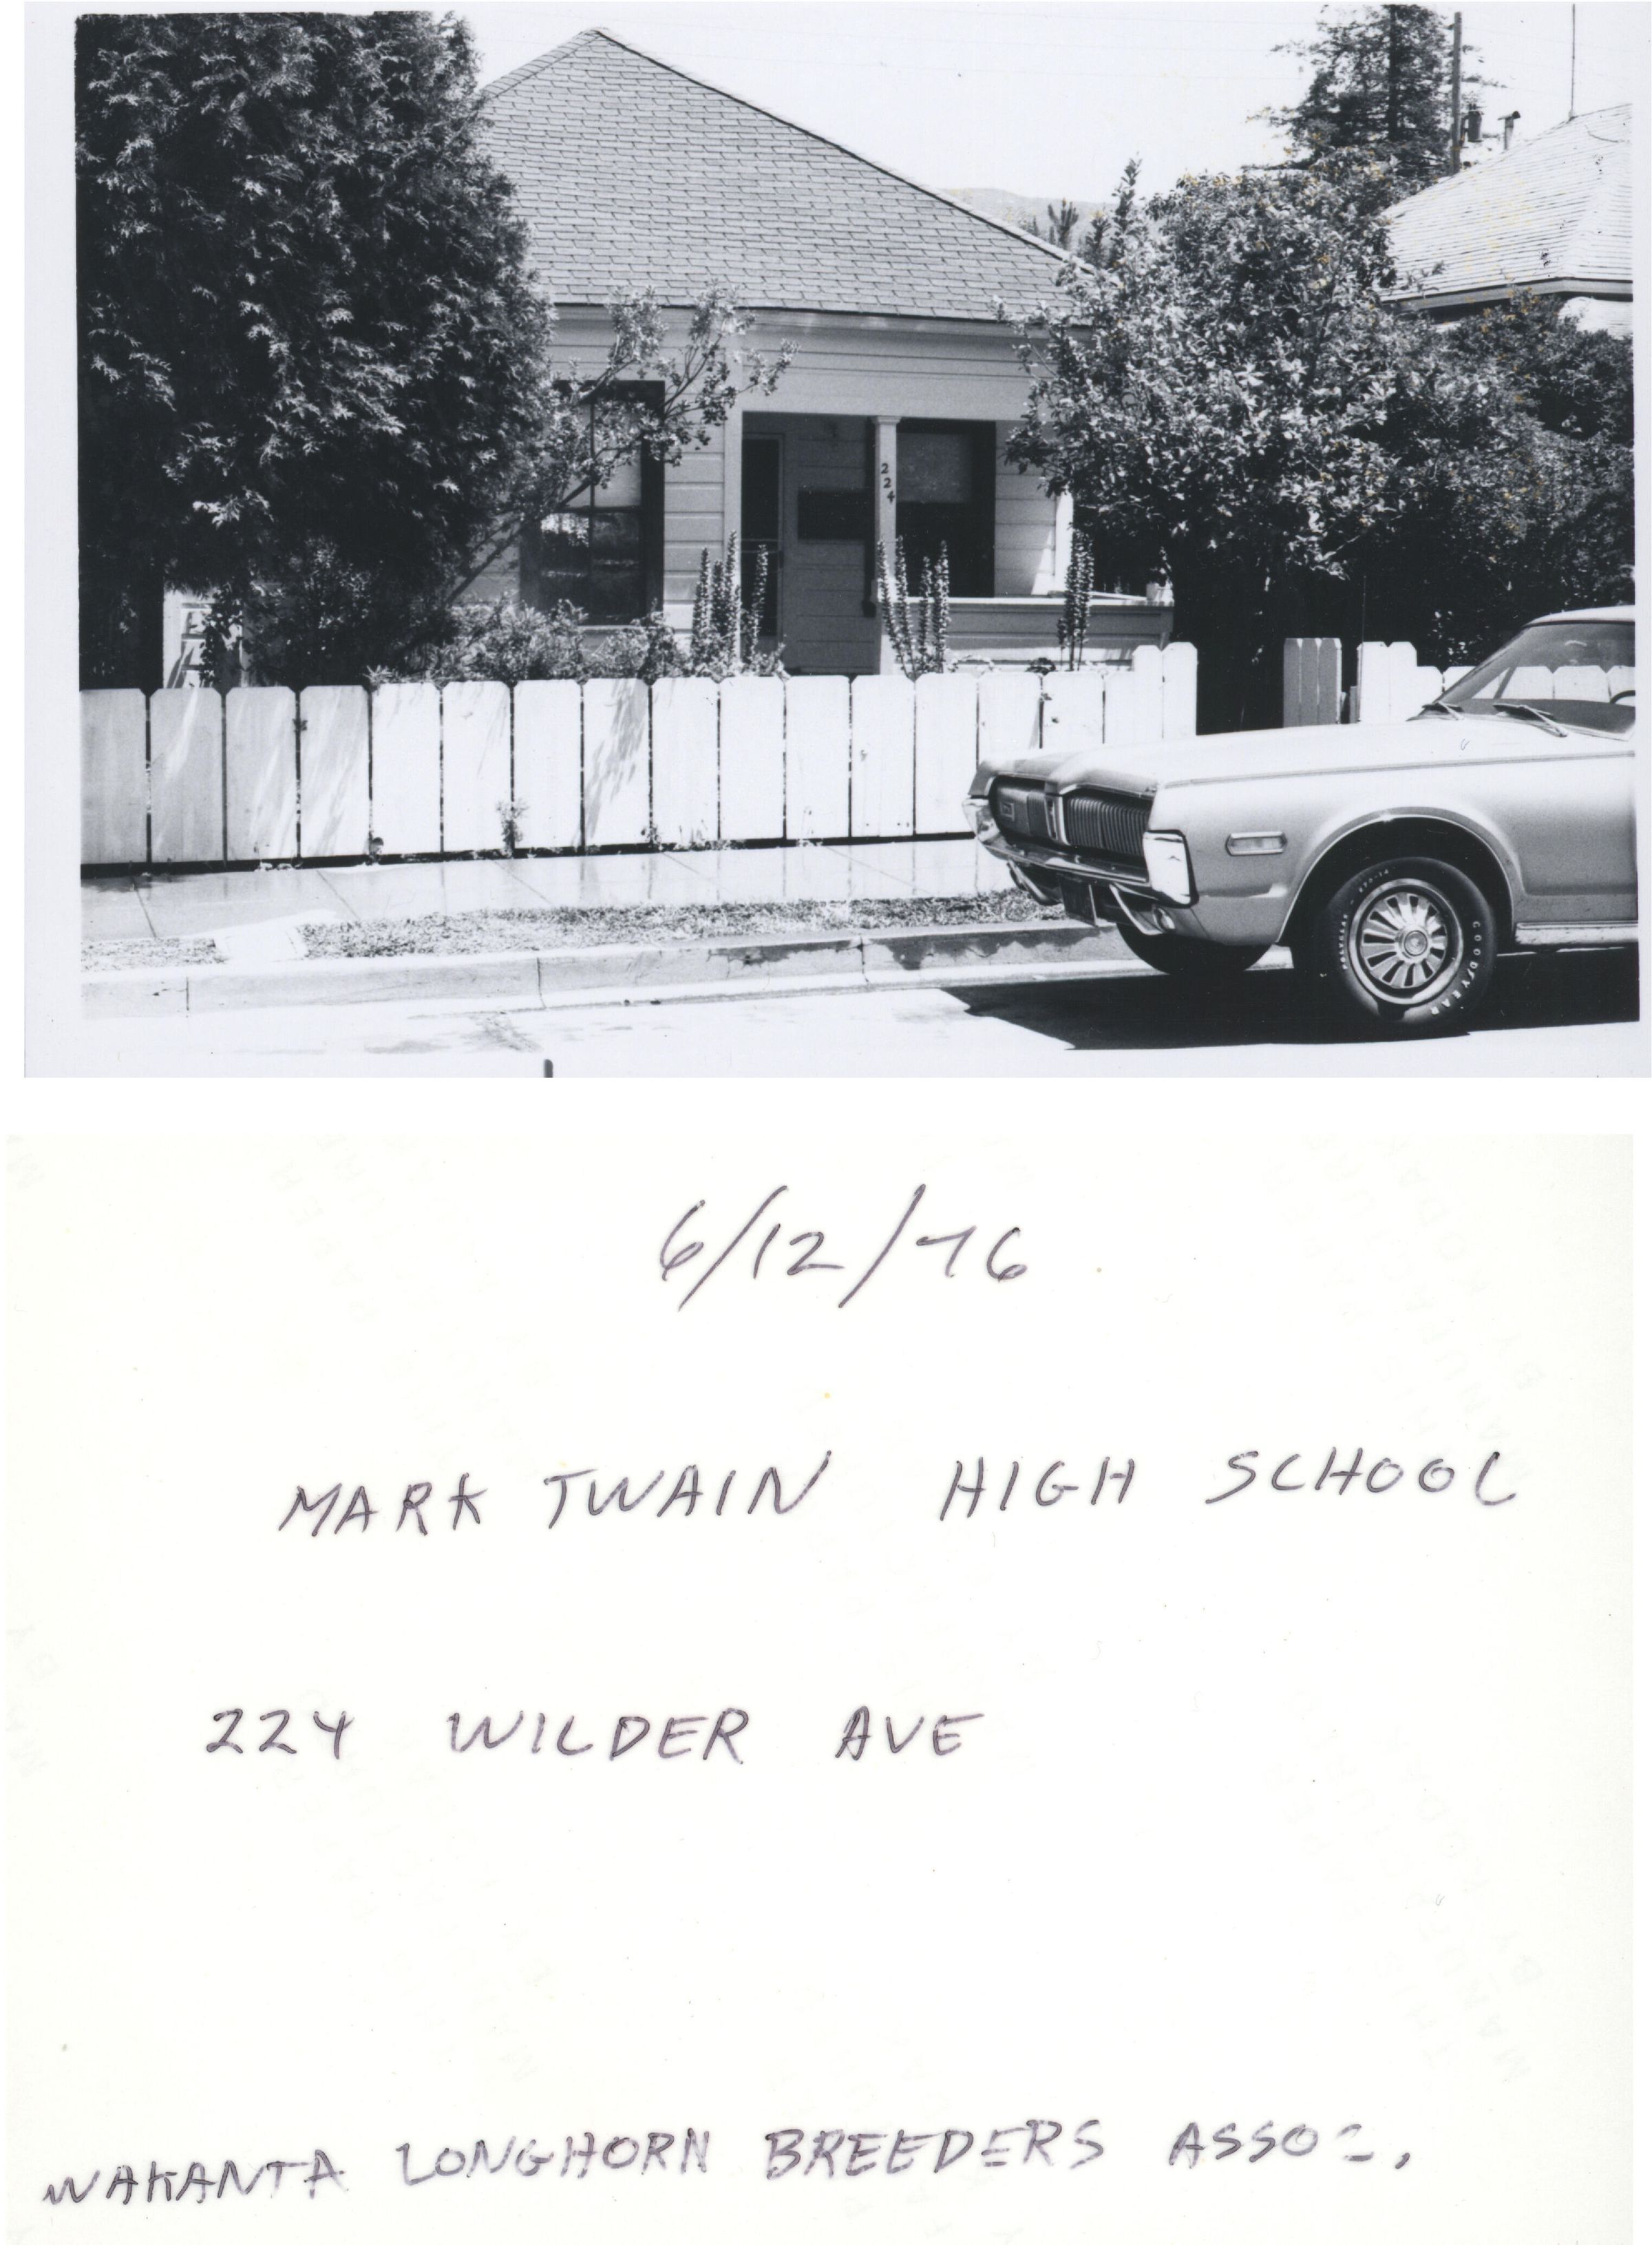 224
GOODYEAR
6/12/76
MARK TWAIN HIGH SCHOOL
224 WILDER AVE
WAKANTA LONGHORN BREEDERS ASSOC.